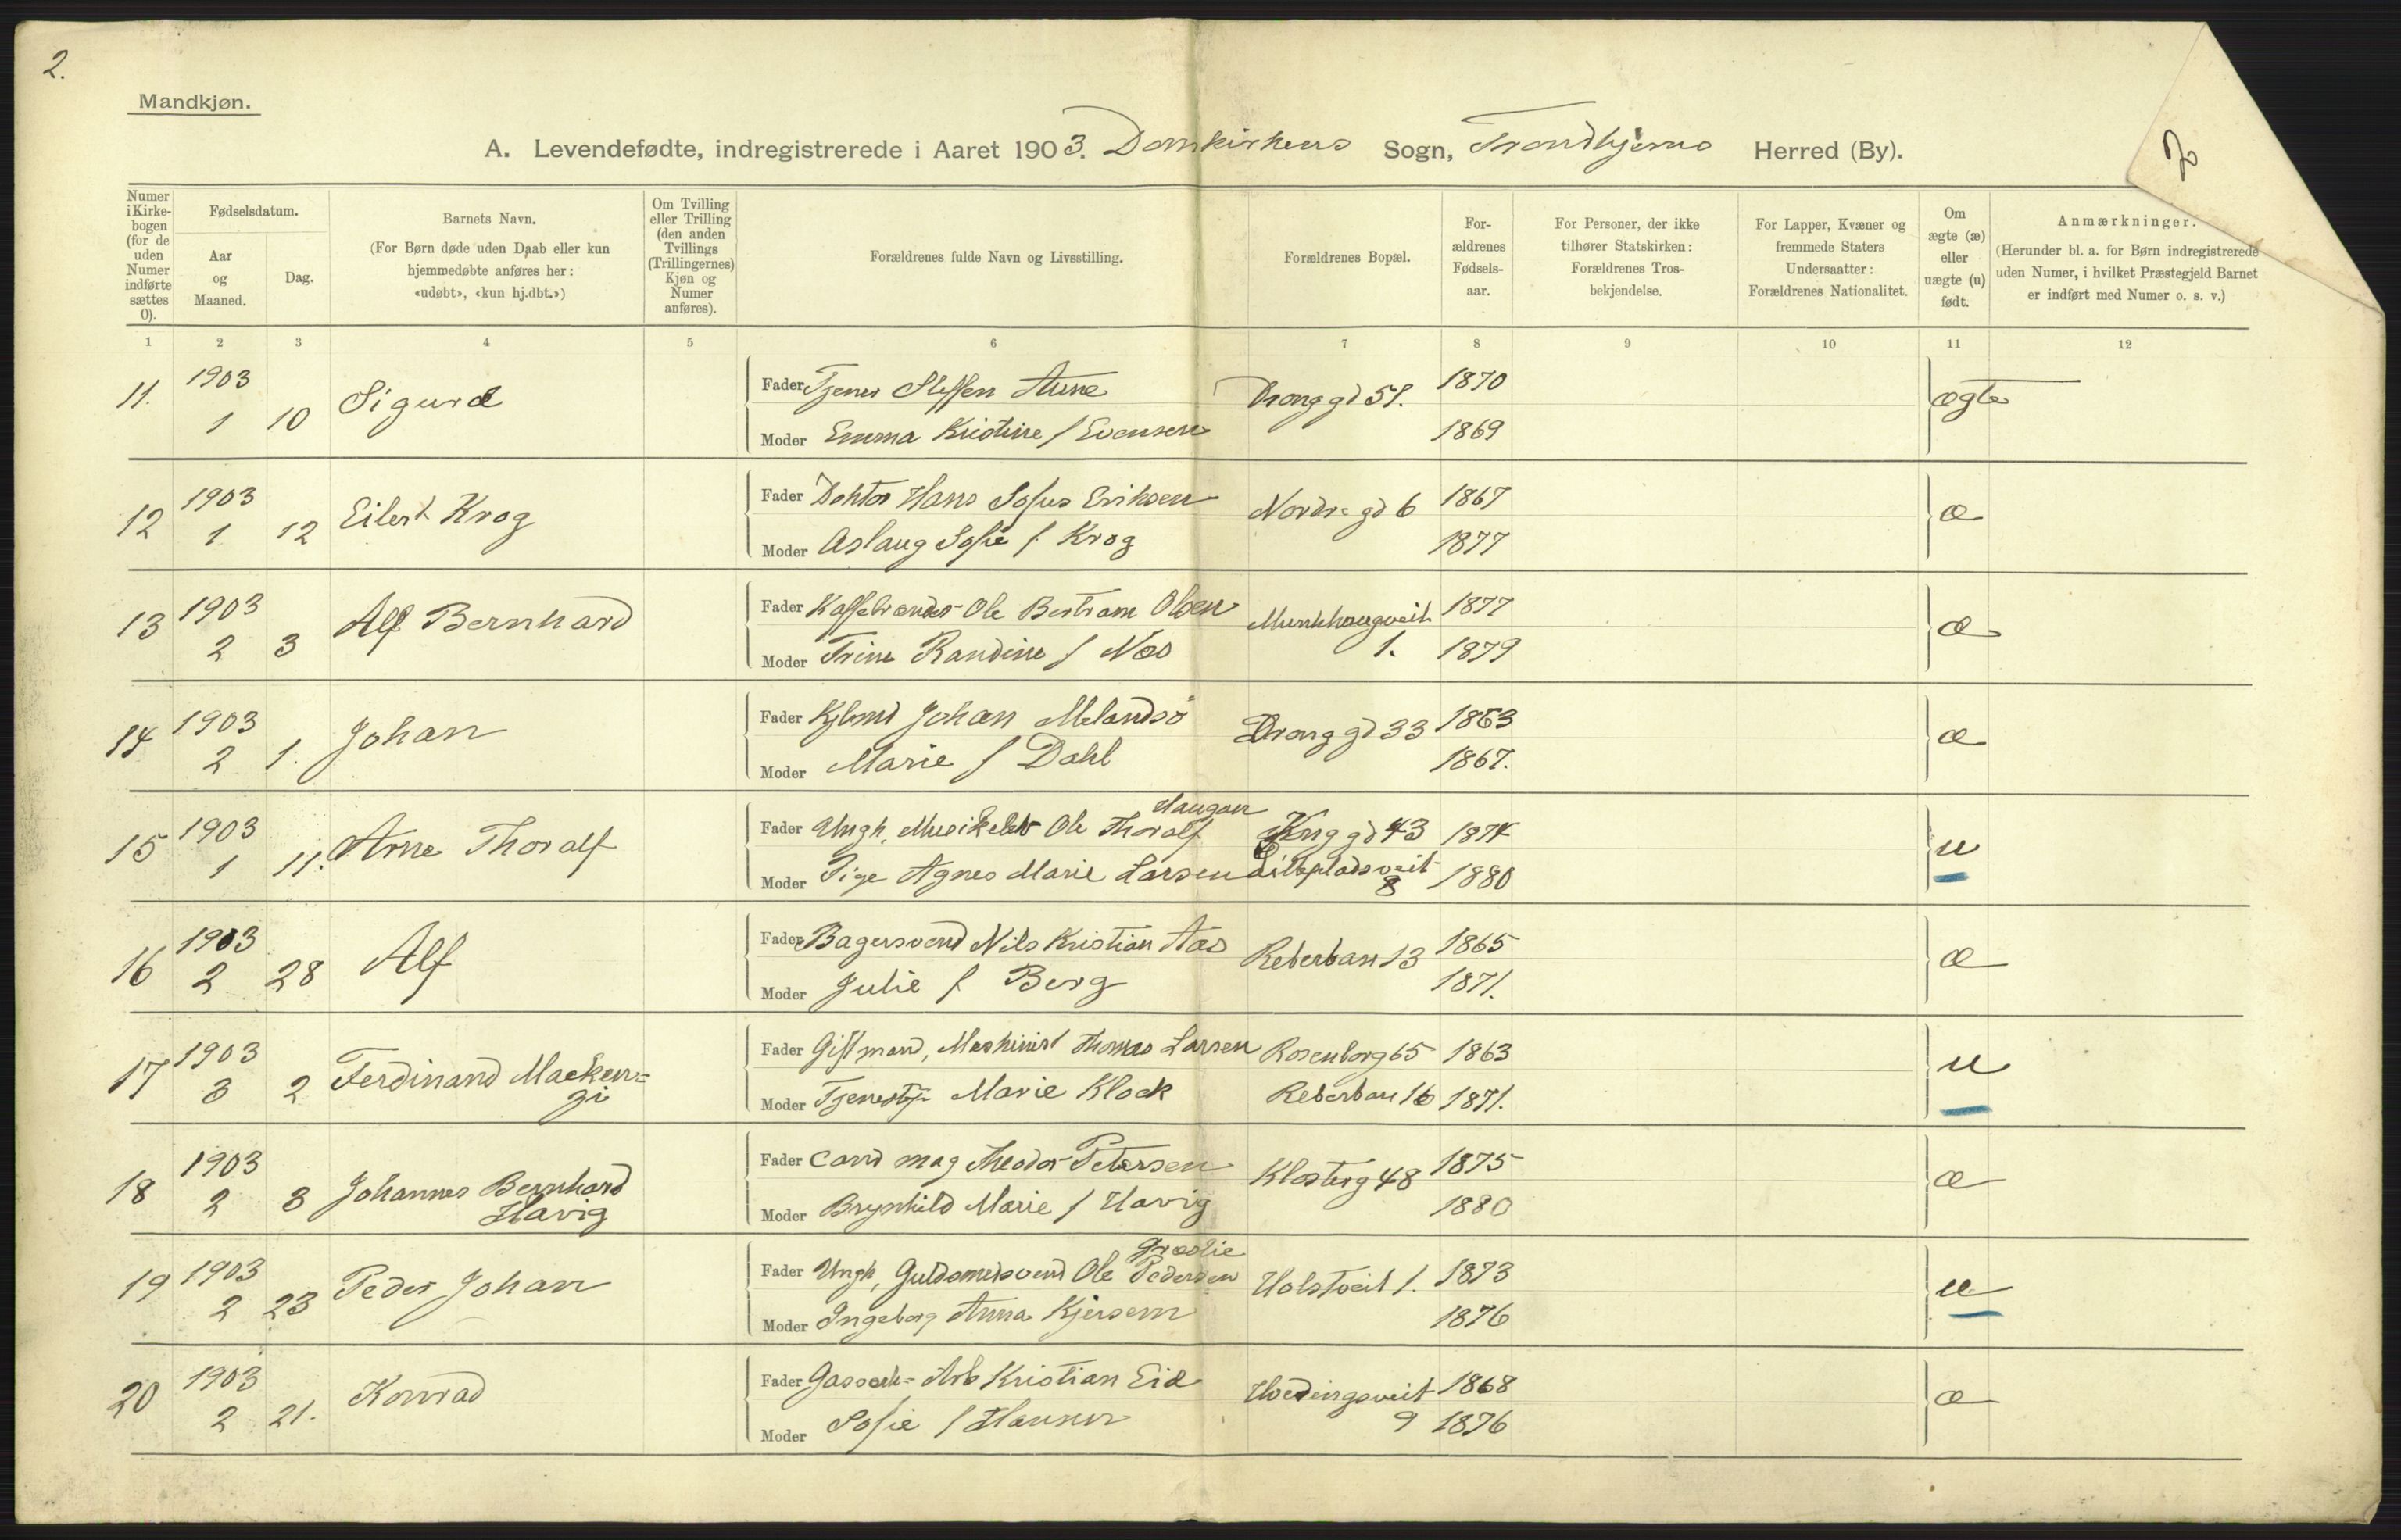 2.
Mandkjøn.
A. Levendefødte, indregistrerede i Aaret 1903. Domkirkens Sogn, Trondhjems Herred (By).
Numer i Kirke-bogen (for de uden Numer indførte sættes 0).
Fødselsdatum.
Aar og Maaned.
Dag.
Barnets Navn.
(For Børn døde uden Daab eller kun hjemmedøbte anføres her: «udøbt», «kun hj.dbt.»)
Om Tvilling eller Trilling (den anden Tvillings (Trillingernes) Kjøn og Numer anføres).
Forældrenes fulde Navn og Livsstilling.
Forældrenes Bopæl.
For-ældrenes Fødsels-aar.
For Personer, der ikke tilhører Statskirken: Forældrenes Tros-bekjendelse.
For Lapper, Kvæner og fremmede Staters Undersaatter: Forældrenes Nationalitet.
Om ægte (æ) eller uægte (u) født.
Anmærkninger.
(Herunder bl. a. for Børn indregistrerede uden Numer, i hvilket Præstegjeld Barnet er indført med Numer o. s. v.)
1 2 3 4 5 6 7 8 9 10 11 12
11. 1903 1 10 Sigurd
Fader Tjener Steffen Aune Drong gd 51. 1870 ægte
Moder Emma Kristine f Evensen 1869
12 1903 1 12 Eilert Krog
Fader Doktor Hans Sofus Eriksen Nordre gd 6 1867 æ
Moder Aslaug Sofie f. Krog 1877
13 1903 2 3 Alf Bernhard
Fader Kaffebrænder Ole Bertram Olsen Munkhaugveit 1. 1877 æ
Moder Trine Randine f Næs 1879
14 1903 2 1. Johan
Fader Kjbmd Johan Melandsö Drong gd 33 1863 æ
Moder Marie f Dahl 1867.
15 1903 1 11. Arne Thoralf
Fader Ungk, Musikelev Ole Thoralf Haugan Kng gd 43 1874 u
Moder Pige Agnes Marie Larsen Ildspladsveit 8 1880
16 1903 2 28 Alf
Fader Bagersvend Nils Kristian Aas Reberban 13 1865 æ
Moder Julie f. Berg 1871.
17 1903 3 2 Ferdinand Macken=
zi
Fader Gift mand, Maskinist Thomas Larsen Rosenborg 65 1863 u
Moder Tjenestp Marie Klock Reberban 16 1871.
18 1903 2 3 Johannes Bernhard
Havig
Fader cand mag Theodor Petersen Klosterg 48 1875 æ
Moder Brynhild Marie f Havig 1880
19 1903 2 23 Peder Johan
Fader Ungk, Guldsmedsvend Ole Pedersen Græslie Holstveit 1. 1873 u
Moder Ingeborg Anna Kjersem 1876
20 1903 2 21. Konrad
Fader Gasverk= Arb Kristian Eid Hvedingsveit 9 1868 æ
Moder Sofie f Hansen 1876